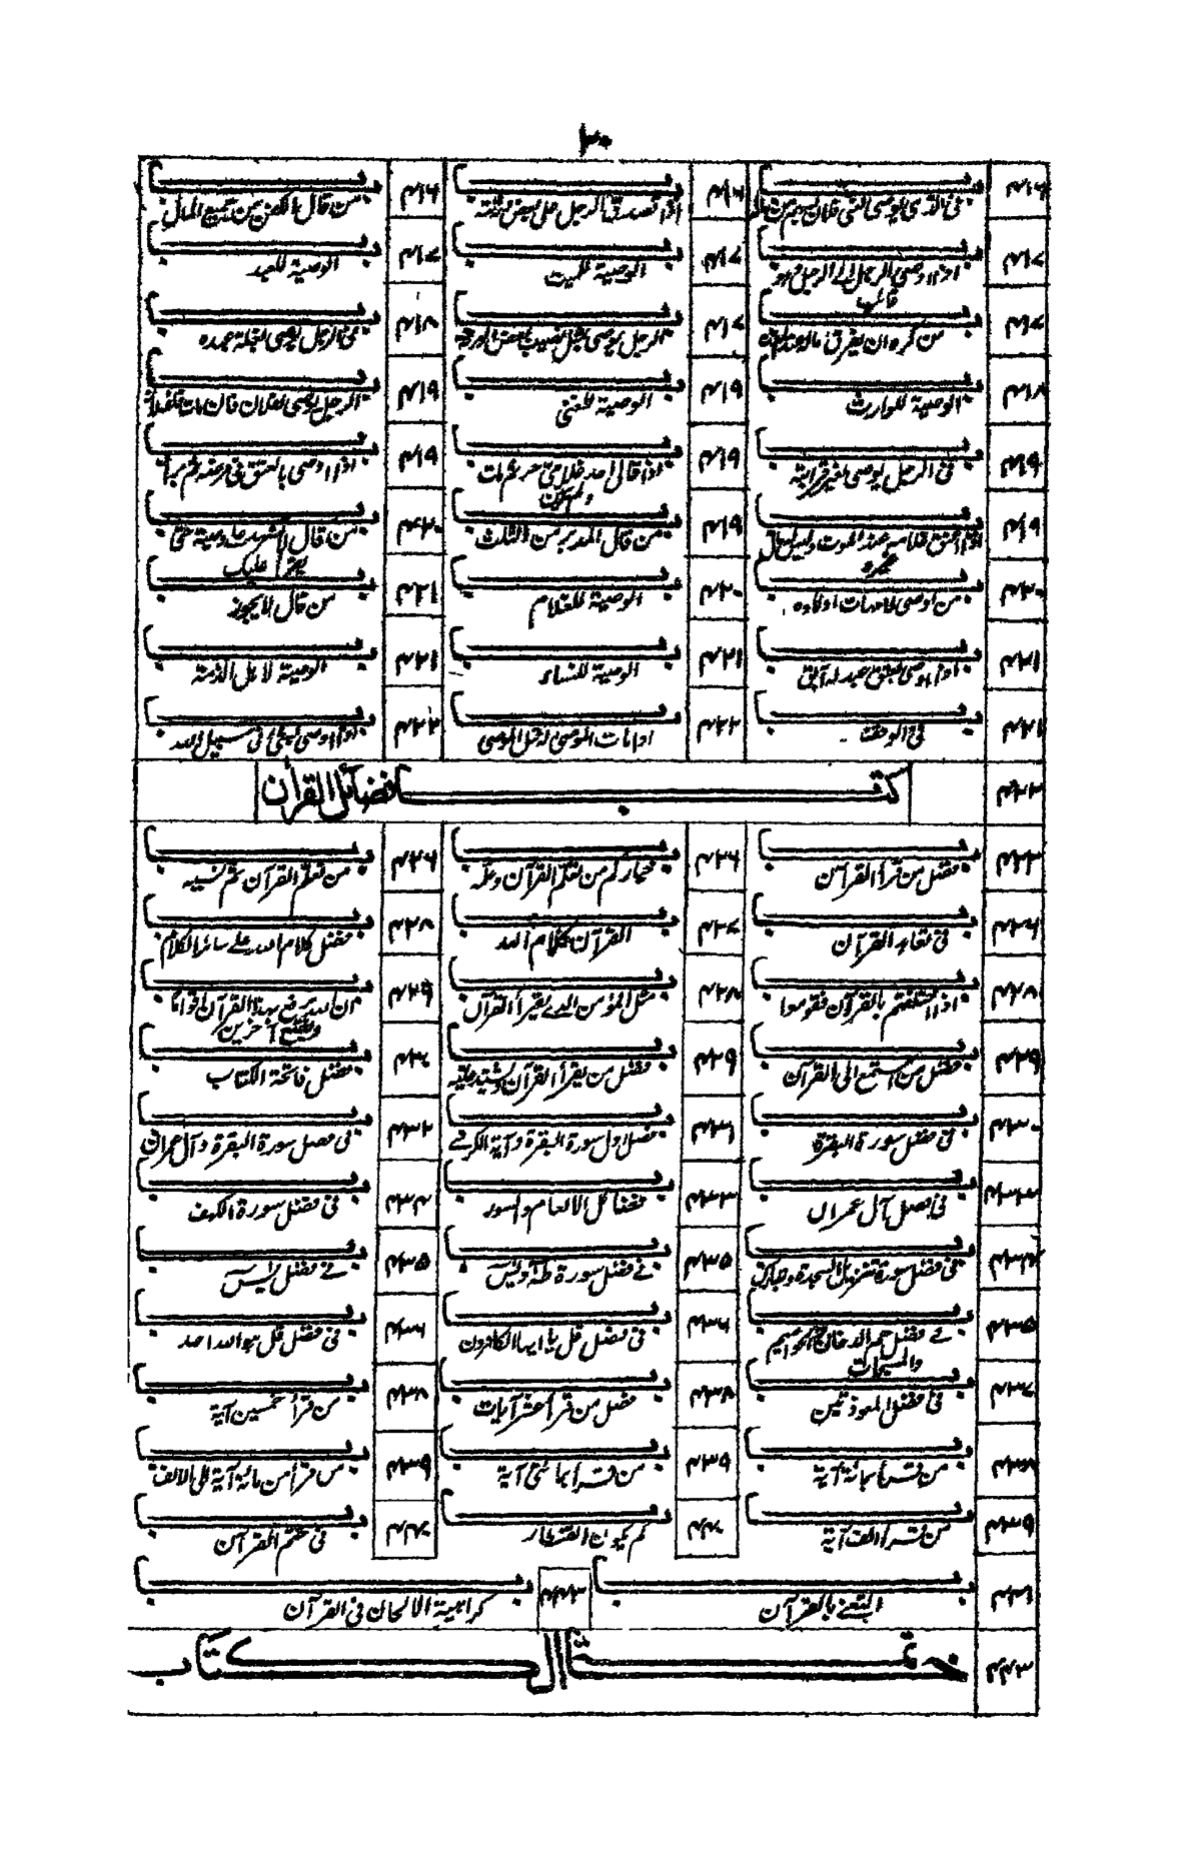 ٣٠
٤١٦ باب في الذي يوصي الثني فلان يسهم من
٤١٦ باب اذا تصدق الرجل على بعض ورثته
٤١٦ باب من قال الكفن من جميع المال
٤١٧ باب اذا اوصى الرجل الى الرجل وهو غائب
٤١٧ باب الوصية للميت
٤١٧ باب الوصية للعبد
٤١٧ باب من كره ان يفرق ماله عند
٤١٧ باب الرجل يوصي بمثل نصيب بعض الورثة
٤١٨ باب في الرجل يوصي لعبده
٤١٨ باب الوصية للوارث
٤١٩ باب الوصية للغني
٤١٩ باب الرجل يوصي لفلان فان مات فلفلان
٤١٩ باب في الرجل يوصي لغير قرابته
٤١٩ باب اذا قال احد غلامي حر ثم مات ولم يبين
٤١٩ باب اذا اوصى بالعتق في مرضه ثم برأ
٤١٩ باب اذا اعتق غلامه عند الموت وليس له مال غيره
٤١٩ باب من قال المدبر من الثلث
٤٢٠ باب من قال لا اشهد على وصية حتى يقرأ عليك
٤٢٠ باب من اوصى لامهات اولاده
٤٢٠ باب الوصية للغلام
٤٢١ باب من قال لا يجوز
٤٢١ باب اذا اوصى بعتق عبد له آبق
٤٢١ باب الوصية للنساء
٤٢١ باب الوصية لاهل الذمة
٤٢١ باب في الوقف
٤٢٢ باب اذا مات الموصى له قبل الموصي
٤٢٢ باب اذا اوصى بشيء في سبيل الله
٤٢٣ كتاب فضائل القرآن
٤٢٣ باب فضل من قرأ القرآن
٤٢٦ باب خياركم من تعلم القرآن وعلمه
٤٢٦ باب من تعلم القرآن ثم نسيه
٤٢٦ باب في تعاهد القرآن
٤٢٧ باب القرآن كلام الله
٤٢٨ باب فضل كلام الله على سائر الكلام
٤٢٨ باب اذا اختلفتم بالقرآن فقوموا
٤٢٨ باب مثل المؤمن الذي يقرأ القرآن
٤٢٩ باب ان الله يرفع بهذا القرآن اقواما ويضع آخرين
٤٢٩ باب فضل من استمع الى القرآن
٤٢٩ باب فضل من يقرأ القرآن ويشتد عليه
٤٣٠ باب فضل فاتحة الكتاب
٤٣٠ باب في فضل سورة البقرة
٤٣١ باب فضل اول سورة البقرة وآية الكرسي
٤٣٢ باب في فضل سورة البقرة وآل عمران
٤٣٣ باب في فضل آل عمران
٤٣٣ باب فضائل الانعام والسور
٤٣٤ باب في فضل سورة الكهف
٤٣٤ باب في فضل سورة تنزيل السجدة وتبارك
٤٣٥ باب في فضل سورة طه ويس
٤٣٥ باب في فضل يس
٤٣٥ باب في فضل حم الدخان والحواميم والمسبحات
٤٣٦ باب في فضل قل يا ايها الكافرون
٤٣٦ باب في فضل قل هو الله احد
٤٣٧ باب في فضل المعوذتين
٤٣٧ باب فضل من قرأ عشر آيات
٤٣٨ باب من قرأ خمسين آية
٤٣٨ باب من قرأ بمائة آية
٤٣٩ باب من قرأ بمائتي آية
٤٣٩ باب من قرأ من مائة آية الى الالف
٤٣٩ باب من قرأ الف آية
٤٤٠ باب كم يكون القنطار
٤٤٠ باب في ختم القرآن
٤٤١ باب التغني بالقرآن
٤٤٣ باب كراهية الالحان في القرآن
٤٤٣ خاتمة الكتاب